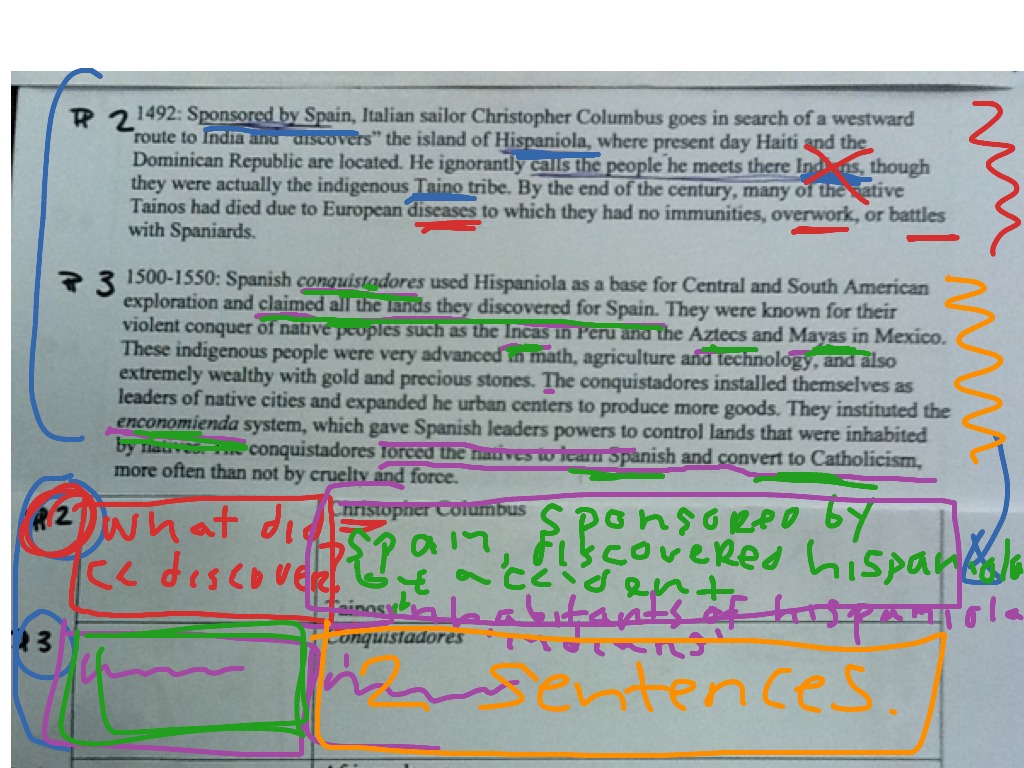 P 2 1492: Sponsored by Spain, Italian sailor Christopher Columbus goes in search of a westward
route to India and "discovers" the island of Hispaniola, where present day Haiti and the
Dominican Republic are located. He ignorantly calls the people he meets there Indians, though
they were actually the indigenous Taino tribe. By the end of the century, many of the native
Tainos had died due to European diseases to which they had no immunities, overwork, or battles
with Spaniards.
P 3 1500-1550: Spanish conquistadores used Hispaniola as a base for Central and South American
exploration and claimed all the lands they discovered for Spain. They were known for their
violent conquer of native peoples such as the Incas in Peru and the Aztecs and Mayas in Mexico.
These indigenous people were very advanced in math, agriculture and technology, and also
extremely wealthy with gold and precious stones. The conquistadores installed themselves as
leaders of native cities and expanded he urban centers to produce more goods. They instituted the
enconomienda system, which gave Spanish leaders powers to control lands that were inhabited
by natives. The conquistadores forced the natives to learn Spanish and convert to Catholicism,
more often than not by cruelty and force.
P 2
What did
CC discover?
Christopher Columbus
Sponsored by
Spain, discovered hispaniola
by accident
Tainos inhabitants of hispaniola
"indians"
P 3
Conquistadores
2 sentences.